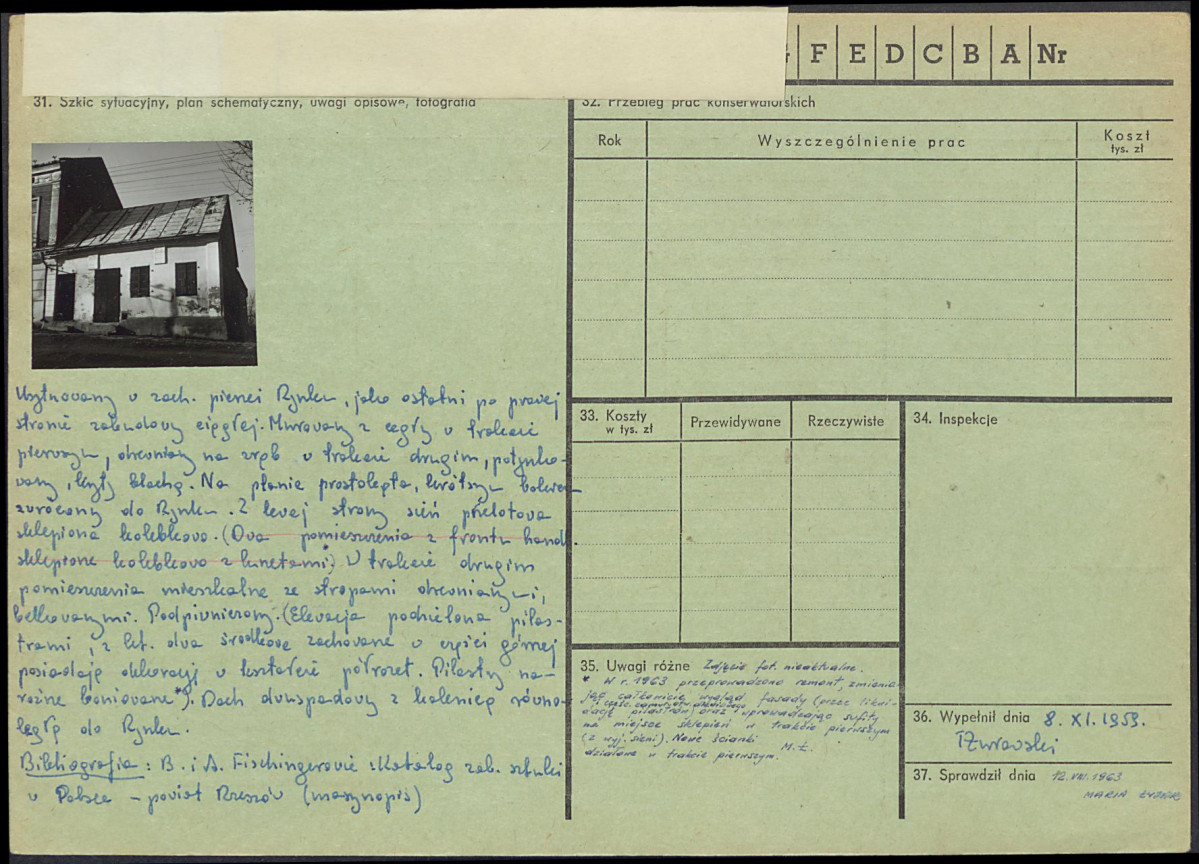 F E D C B A Nr
31. Szkic sytuacyjny, plan schematyczny, uwagi opisowe, fotografia
Usytuowany w zach. pierzei Rynku, jako ostatni po prawej
stronie zabudowy ciągłej. Murowany z cegły w trakcie
pierwszym, drewniany na zrąb w trakcie drugim, potynko-
wany, kryty blachą. Na planie prostokąta, krótszym bokiem
zwrócony do Rynku. Z lewej strony sień przelotowa
sklepiona kolebkowo. (Dwa pomieszczenia z frontu handl.
sklepione kolebkowo z lunetami*) W trakcie drugim
pomieszczenia mieszkalne ze stropami drewnianymi,
belkowanymi. Podpiwniczony. (Elewacja podzielona pilas-
trami, z kt. dwa środkowe zachowane w części górnej
posiadają dekorację w kształcie półrozet. Pilastry na-
rożne boniowane*). Dach dwuspadowy z kalenicą równo-
ległą do Rynku.
Bibliografia: B. i A. Fischingerowie: Katalog zab. sztuki
w Polsce - powiat Rzeszów (maszynopis)
32. Przebieg prac konserwatorskich
Rok Wyszczególnienie prac Koszt
tys. zł
33. Koszty
w tys. zł Przewidywane Rzeczywiste
34. Inspekcje
35. Uwagi różne Zdjęcie fot. nieaktualne.
* W r. 1963 przeprowadzono remont, zmienia-
jąc całkowicie wygląd fasady (przez likwi-
dację pilastrów) oraz wprowadzając sufity
na miejsce sklepień w trakcie pierwszym
(z wyj. sieni). Nowe ścianki
działowe w trakcie pierwszym. M.Ł.
36. Wypełnił dnia 8. XI. 1959.
37. Sprawdził dnia 12.VIII.1963
MARIA